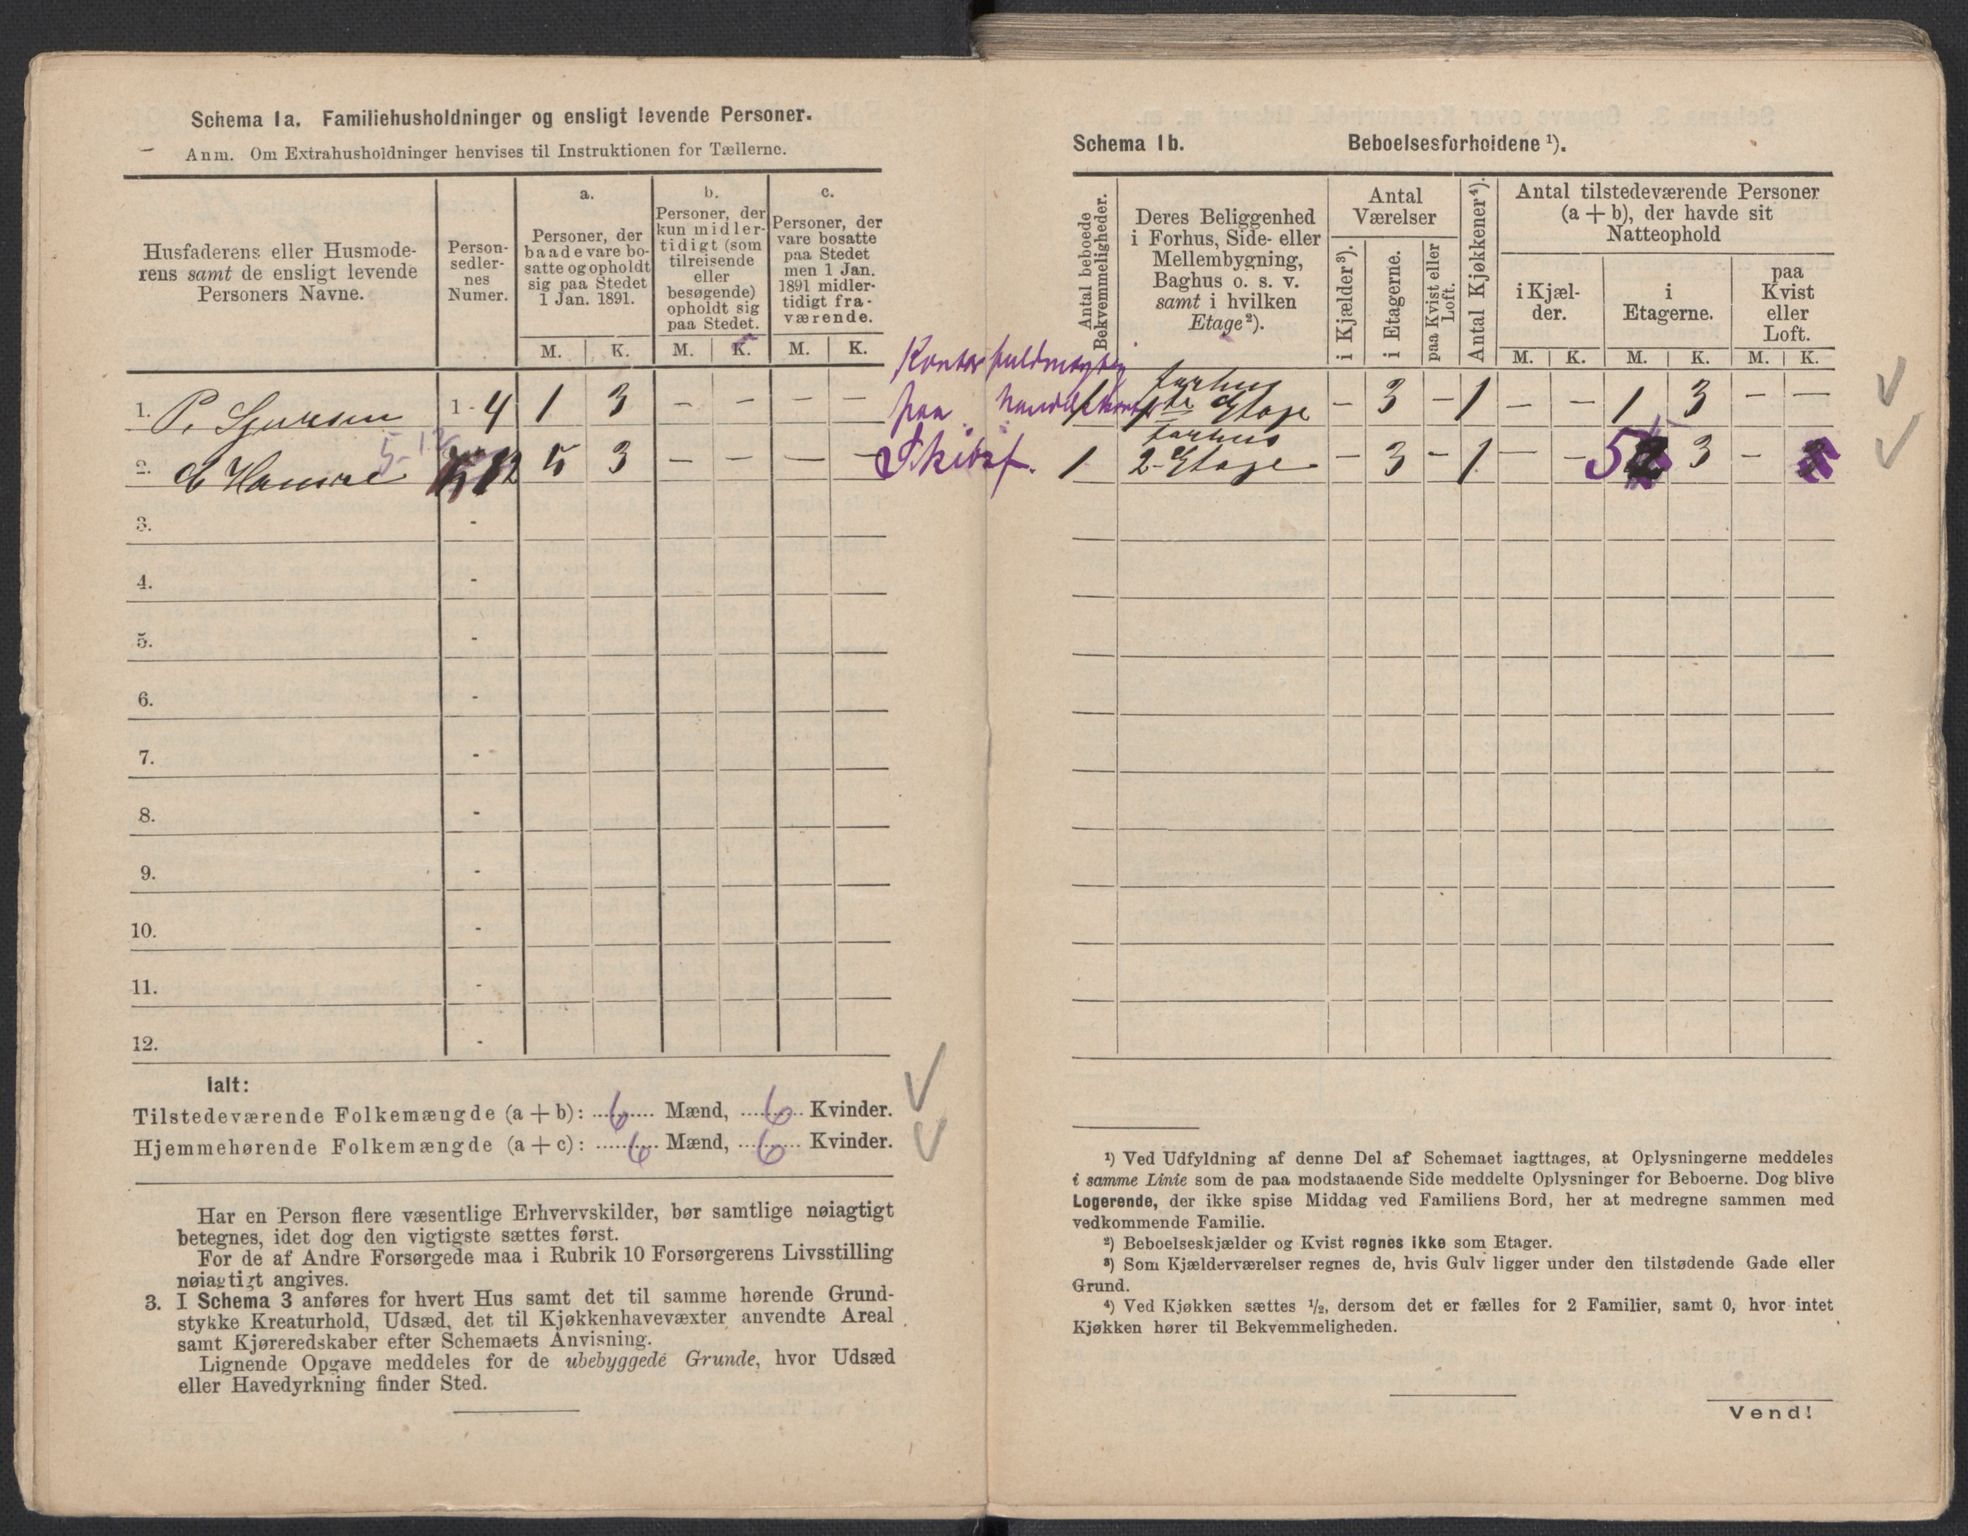 Schema 1a. Familiehusholdninger og ensligt levende Personer.
Anm. Om Extrahusholdninger henvises til Instruktionen for Tællerne.
Husfaderens eller Husmode-
rens samt de ensligt levende
Personers Navne.
Person-
sedler-
nes
Numer.
a.
Personer, der
baade vare bo-
satte og opholdt
sig paa Stedet
1 Jan. 1891.
b.
Personer, der
kun midler-
tidigt (som
tilreisende
eller
besøgende)
opholdt sig
paa Stedet.
c.
Personer, der
vare bosatte
paa Stedet
men 1 Jan.
1891 midler-
tidigt fra-
værende.
M. K. M. K. M. K.
1. P. Sjursen 1 - 4 1 3 — — — —
5-12
2. Hansen 12 5 3 — — — —
3. -
4. -
5. -
6. -
7. -
8. -
9. -
10. -
11. -
12. -
Ialt:
Tilstedeværende Folkemængde (a + b): 6 Mænd, 6 Kvinder.
Hjemmehørende Folkemængde (a + c): 6 Mænd, 6 Kvinder.
Har en Person flere væsentlige Erhvervskilder, bør samtlige nøiagtigt
betegnes, idet dog den vigtigste sættes først.
For de af Andre Forsørgede maa i Rubrik 10 Forsørgerens Livsstilling
nøiagtigt angives.
3. I Schema 3 anføres for hvert Hus samt det til samme hørende Grund-
stykke Kreaturhold, Udsæd, det til Kjøkkenhavevæxter anvendte Areal
samt Kjøreredskaber efter Schemaets Anvisning.
Lignende Opgave meddeles for de ubebyggede Grunde, hvor Udsæd
eller Havedyrkning finder Sted.
Schema 1b. Beboelsesforholdene ¹).
Antal beboede
Bekvemmeligheder.
Deres Beliggenhed
i Forhus, Side- eller
Mellembygning,
Baghus o. s. v.
samt i hvilken
Etage²).
Antal
Værelser
i Kjælder³).
i Etagerne.
paa Kvist eller
Loft.
Antal Kjøkkener⁴).
Antal tilstedeværende Personer
(a + b), der havde sit
Natteophold
i Kjæl-
der.
i
Etagerne.
paa
Kvist
eller
Loft.
M. K. M. K. M. K.
Kontorfuldmægtig
paa
Skibsf.
1 forhus
1ste Etage — 3 — 1 — — 1 3 — —
1 forhus
2-Etage — 3 — 1 — — 5 3 —
¹) Ved Udfyldning af denne Del af Schemaet iagttages, at Oplysningerne meddeles
i samme Linie som de paa modstaaende Side meddelte Oplysninger for Beboerne. Dog blive
Logerende, der ikke spise Middag ved Familiens Bord, her at medregne sammen med
vedkommende Familie.
²) Beboelseskjælder og Kvist regnes ikke som Etager.
³) Som Kjælderværelser regnes de, hvis Gulv ligger under den tilstødende Gade eller
Grund.
⁴) Ved Kjøkken sættes ½, dersom det er fælles for 2 Familier, samt 0, hvor intet
Kjøkken hører til Bekvemmeligheden.
Vend!